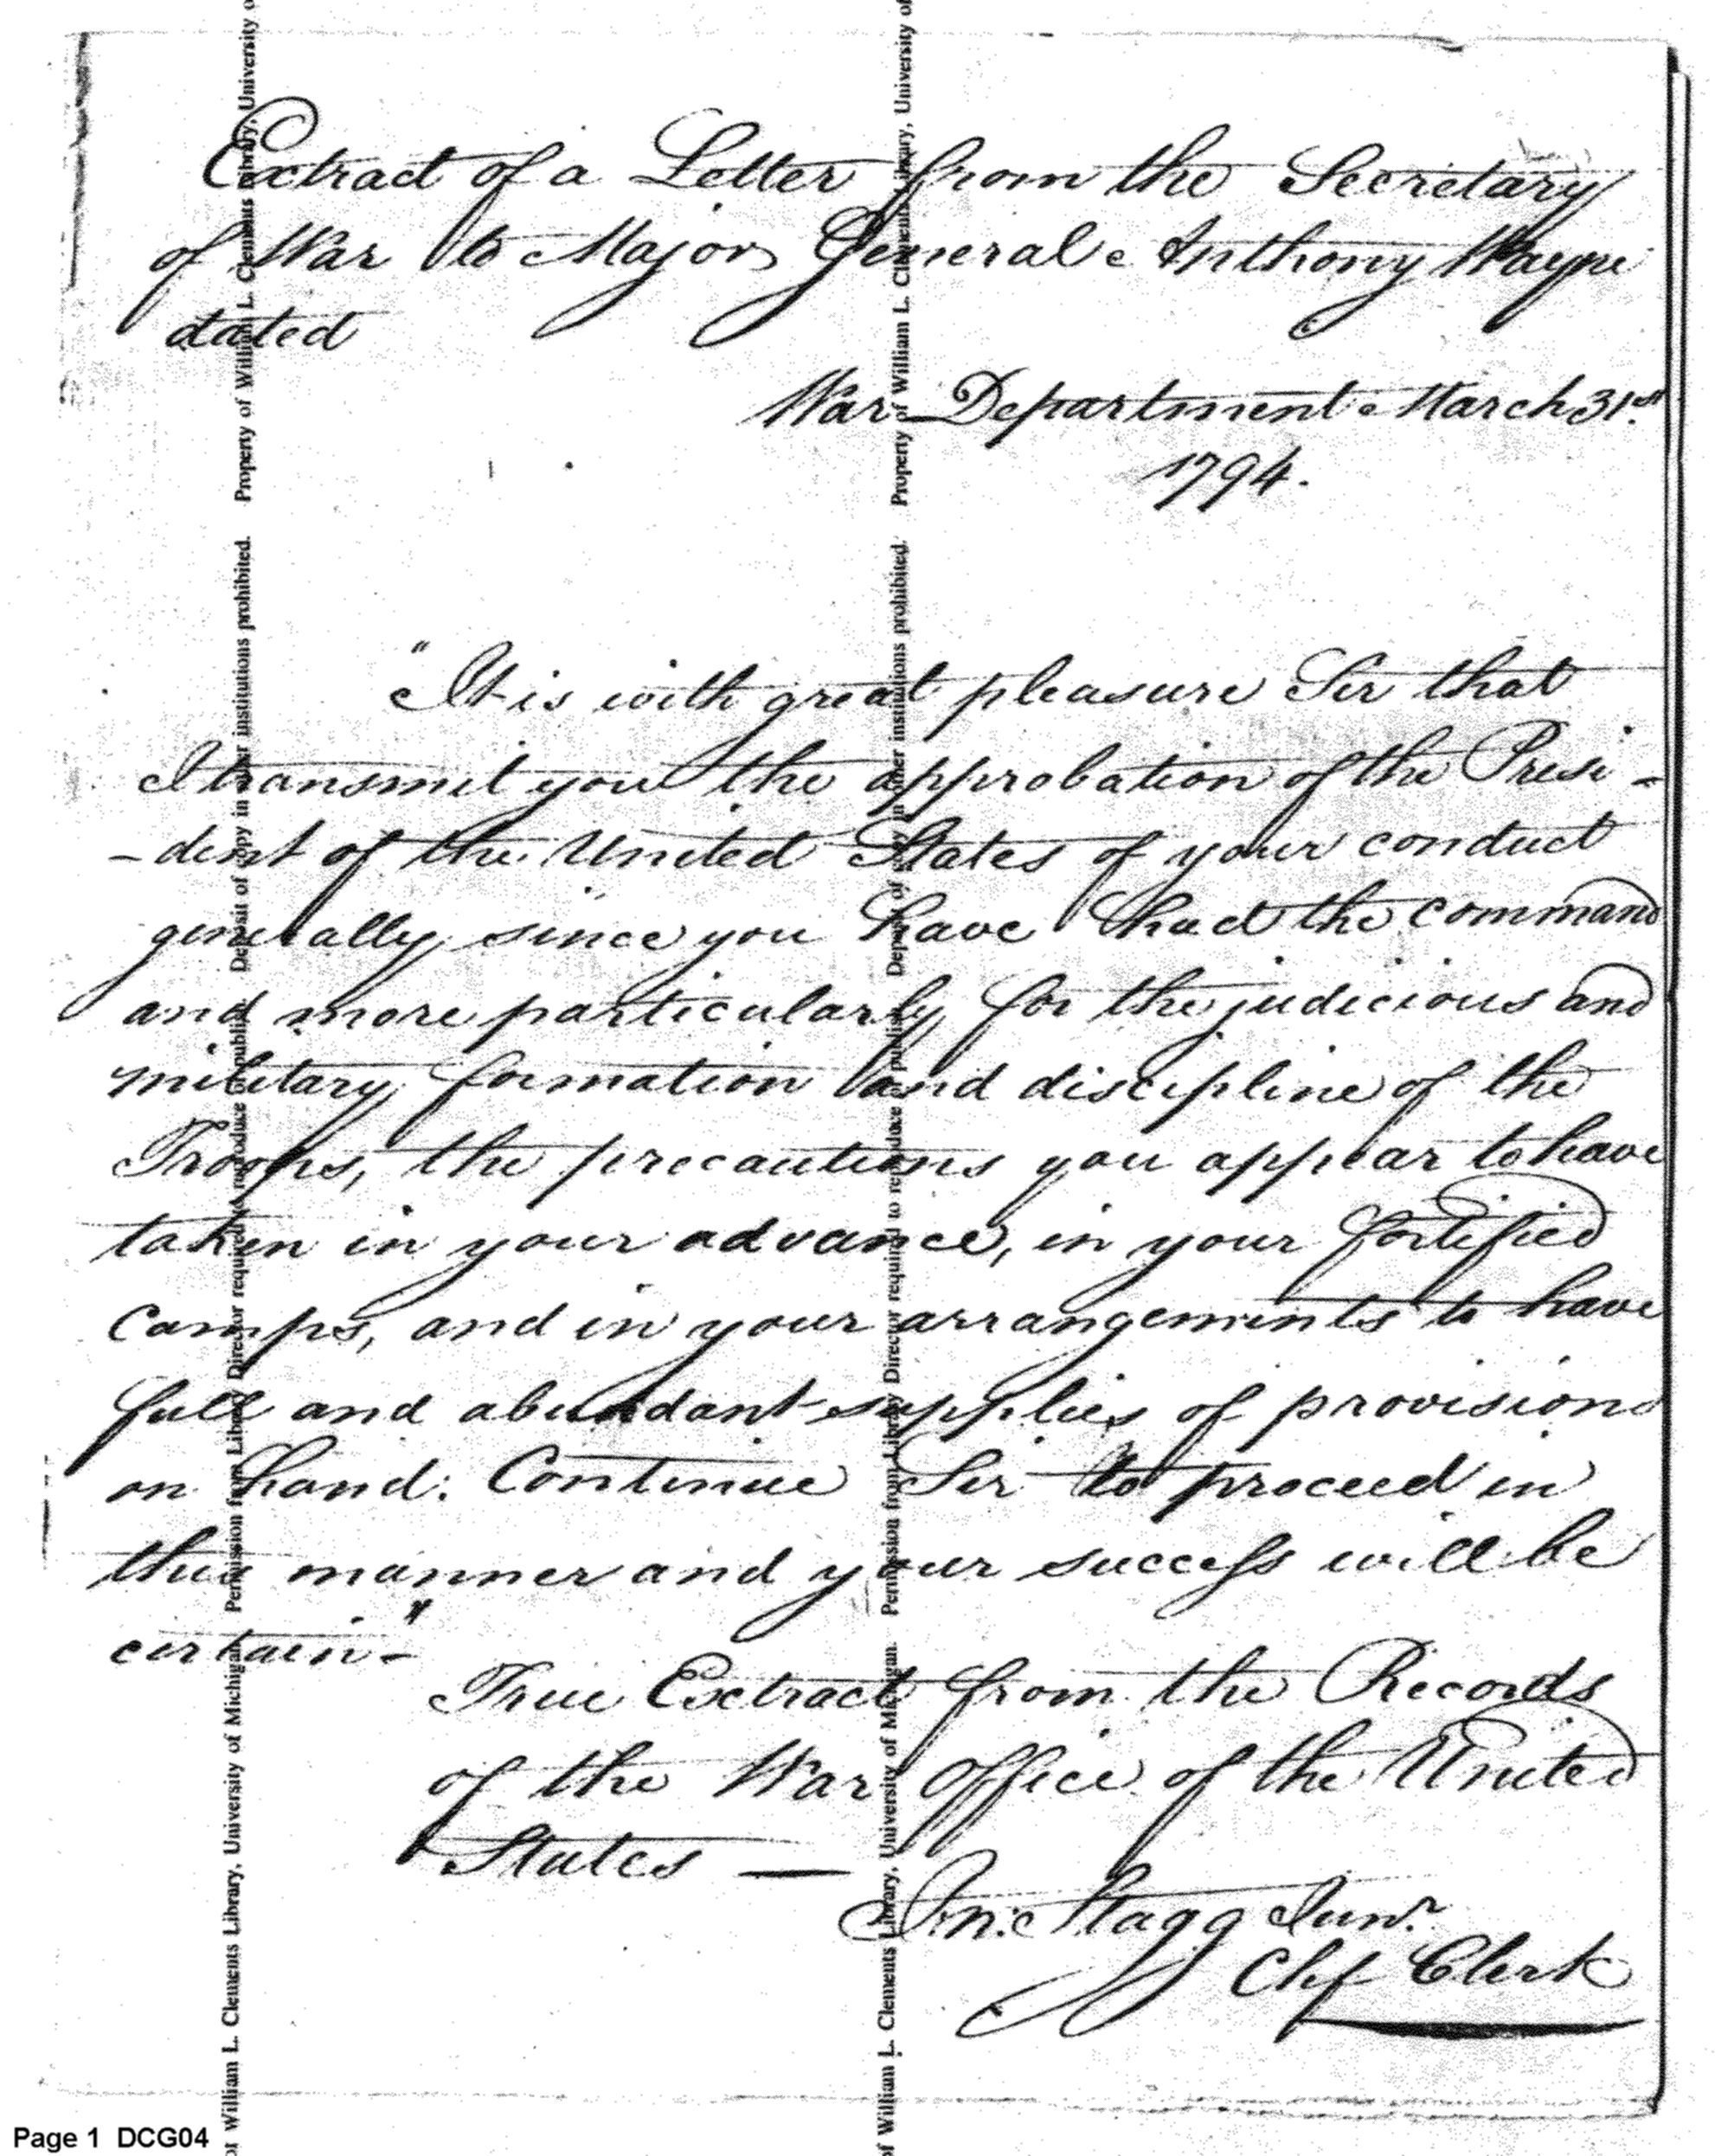 Extract of a Letter from the Secretary
of War to Major General Anthony Wayne
dated
War Department March 31st.
1794.
"It is with great pleasure Sir that
I transmit you the approbation of the Presi-
-dent of the United States of your conduct
generally since you have had the command
and more particularly for the judicious and
military formation and discipline of the
Troops, the precautions you appear to have
taken in your advance, in your fortified
Camps, and in your arrangements to have
full and abundant supplies of provisions
on hand. Continue Sir to proceed in
this manner and your success will be
certain-"
True Extract from the Records
of the War Office of the United
States —
Jno: Stagg Junr.
Chf Clerk
Property of William L. Clements Library, University of Michigan. Permission from Library Director required to reproduce or publish. Deposit of copy in other institutions prohibited. Property of William L. Clements Library, University of
of William L. Clements Library, University of Michigan. Permission from Library Director required to reproduce or publish. Deposit of copy in other institutions prohibited. Property of William L. Clements Library, University of
Page 1 DCG04